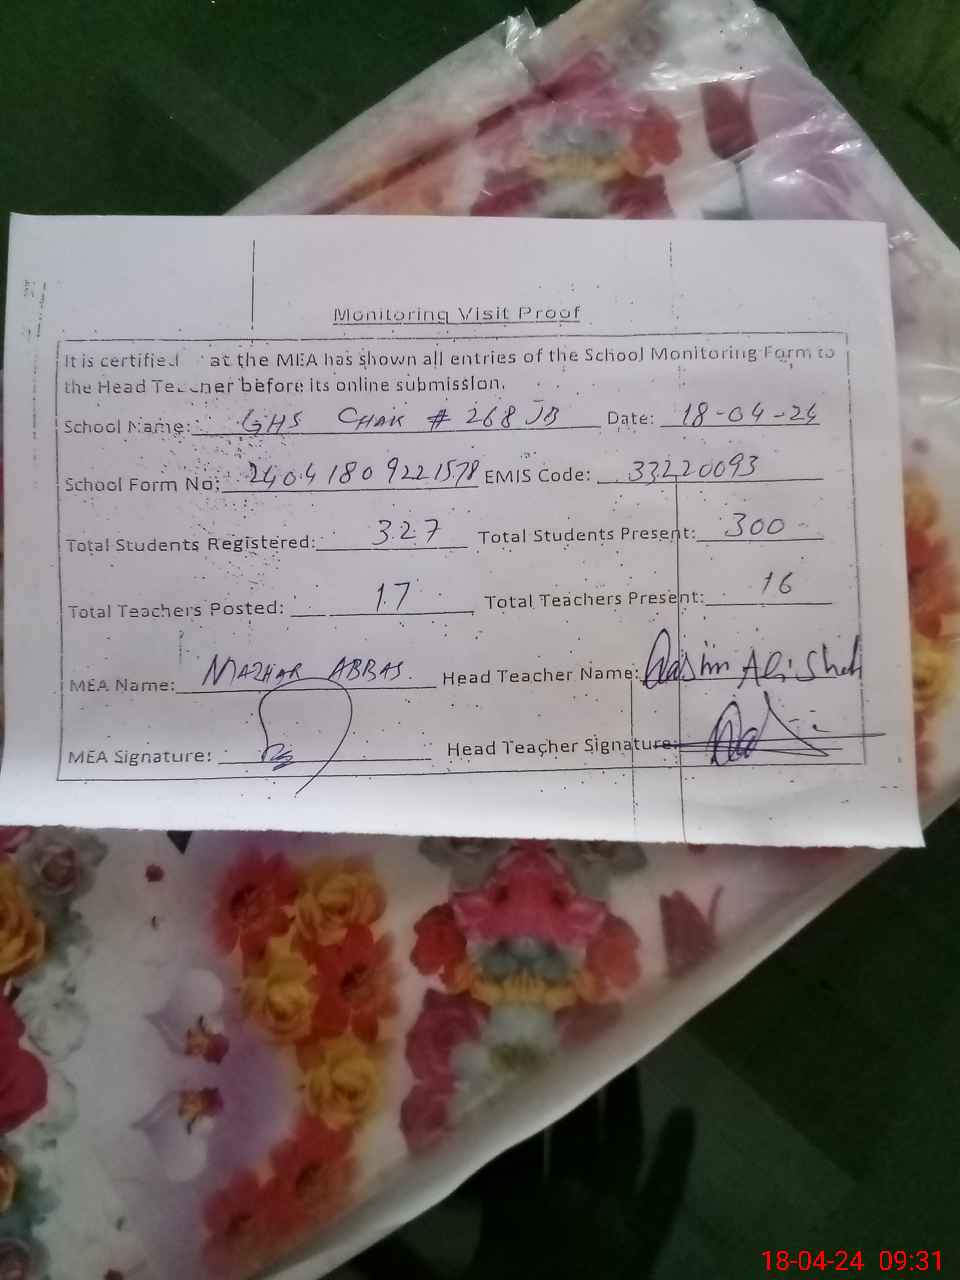 Monitoring Visit Proof
It is certified at the MEA has shown all entries of the School Monitoring Form to
the Head Teacher before its online submission.
School Name: GHS CHAK # 268 JB Date: 18-04-24
School Form No: 24041809221578 EMIS Code: 33220093
Total Students Registered: 327 Total Students Present: 300
Total Teachers Posted: 17 Total Teachers Present: 16
MEA Name: MAZHAR ABBAS. Head Teacher Name: Qasim Ali Shah
MEA Signature: Head Teacher Signature:
18-04-24 09:31